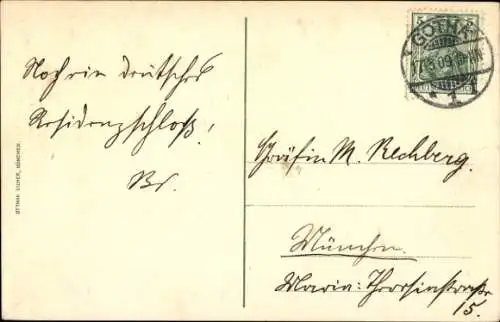 Noch ein deutsches
Residenzschloß!
Br.
OTTMAR ZIEHER, MÜNCHEN.
5 5
GOTHA
17.5.09
* 1 *
Gräfin M. Rechberg.
München.
Maria-Theresiastraße
15.